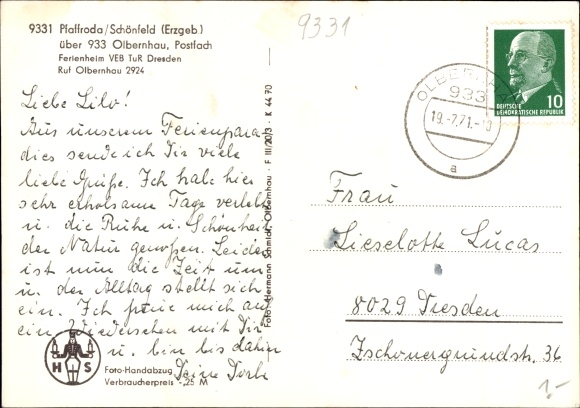 9331 Pfaffroda/Schönfeld (Erzgeb.)
über 933 Olbernhau, Postfach
Ferienheim VEB TuR Dresden
Ruf Olbernhau 2924
9331
OLBERNHAU
933
19.-7.71.-10
a
DEUTSCHE
DEMOKRATISCHE REPUBLIK
10
Liebe Lilo!
Aus unserem Ferienpara-
dies sende ich Dir viele
liebe Grüße. Ich habe hier
sehr erholsame Tage verlebt
u. die Ruhe u. Schönheit
der Natur genossen. Leider
ist nun die Zeit um
u. der Alltag stellt sich
ein. Ich freue mich auf
ein Wiedersehen mit Dir
u. bin bis dahin
Deine
Foto-Hermann Schmidt, Olbernhau · F III/20/3 · K 44 70
Frau
Lieselotte Lucas
8029 Dresden
Zschonergrundstr. 36
H S
Foto-Handabzug
Verbraucherpreis -,25 M
1,-